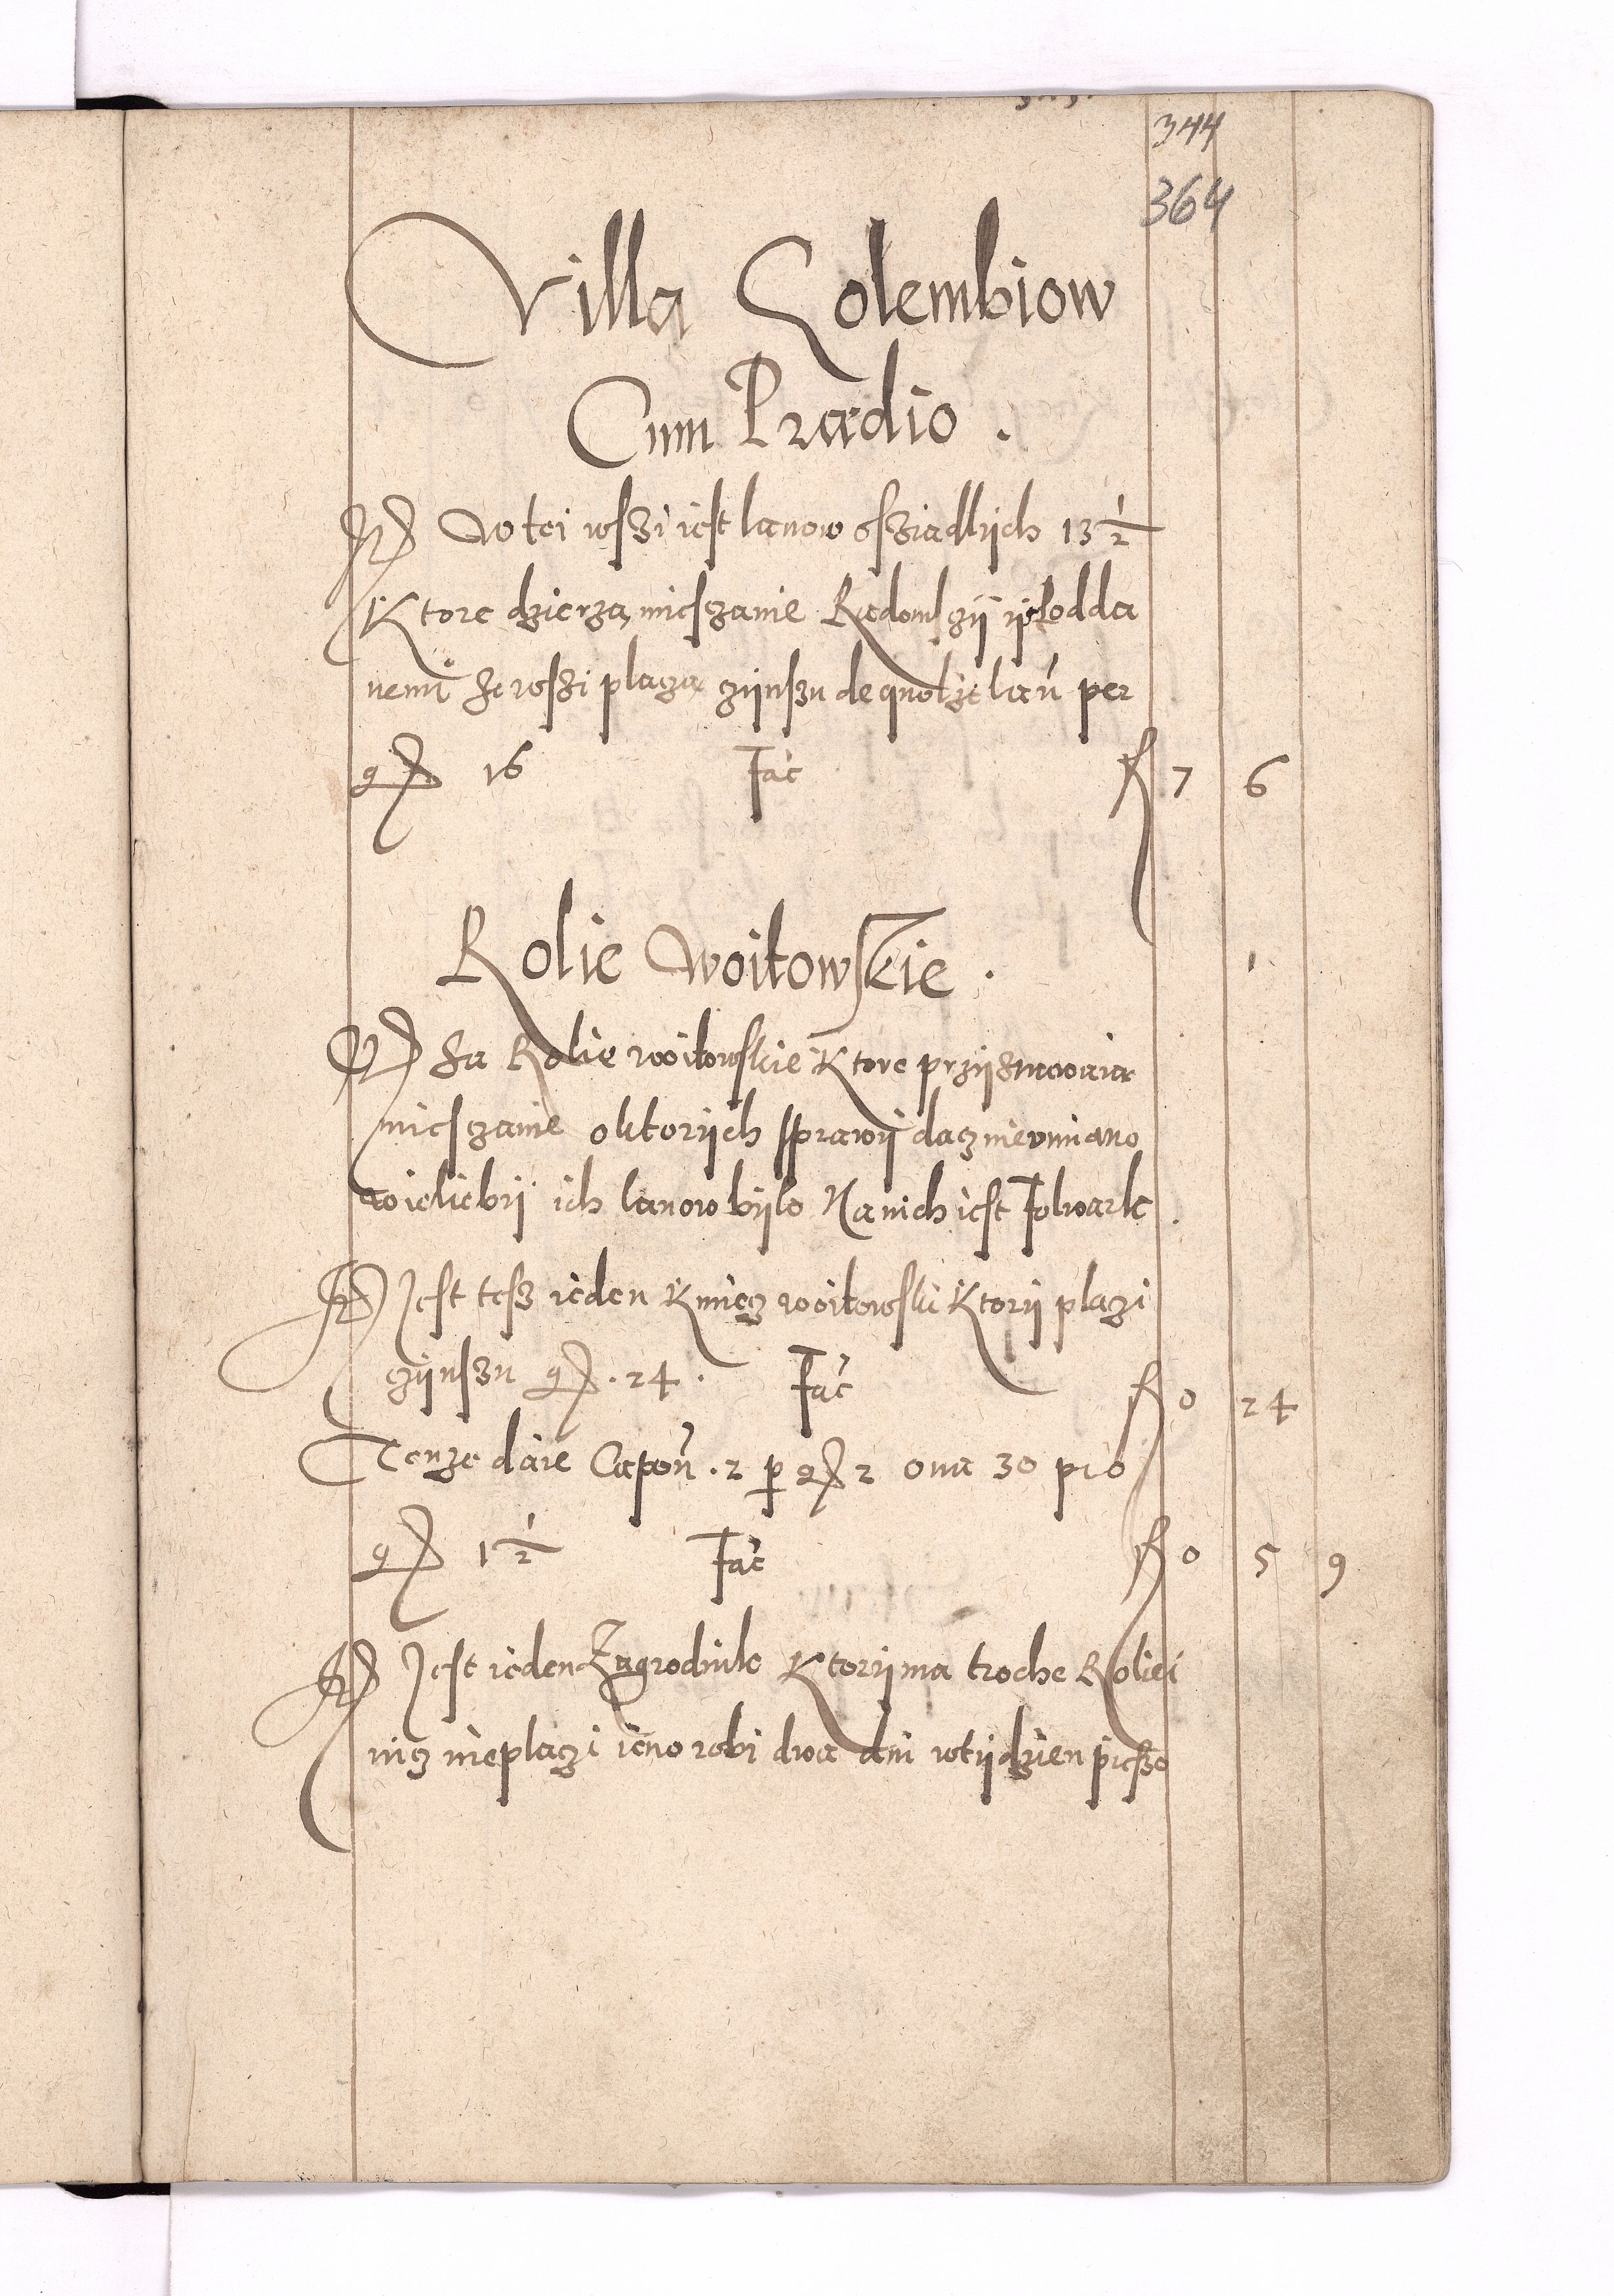 344
364
Villa Golembiow
Cum Prædio .
It W tei wsżi iest lanow osżiadlÿch 13 1/2
Ktore dzierzą miesczanie Radomsczÿ ÿ poddanemi
że wsżi placzą czÿnszu de quolÿ laū per
gr 16 Fac̄ fl 7 6
Rolie woitowskie .
It Za Rolie woitowskie Ktore przÿżnawaią
miesczanie o ktorÿch sprawÿ dacz nie vmiano
wielie bÿ ich lanow bÿlo Na nich iest Folwark .
It Jest tesz ieden Kmiecz woitowski Ktorÿ placzi
czÿnszu gr . 24 . Fac̄ fl 0 24
Tenże daie Capoū . 2 p gr 2 oua 30 pro
gr 1 1/2 Fac̄ fl 0 5 9
It Jest ieden Zagrodnik Ktorÿ ma troche Roliei
nicz nie placzi ieno robi dwa dni w tÿdzien pieszo